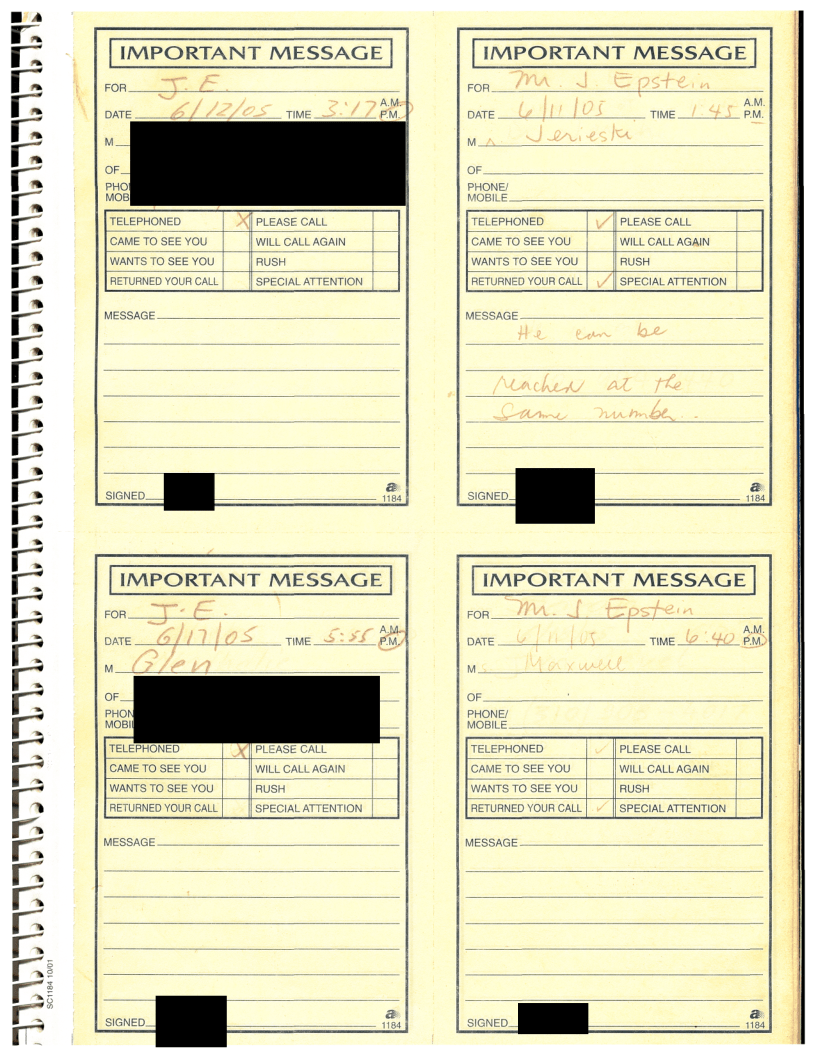 IMPORTANT MESSAGE
FOR J.E.
DATE 6/12/05 TIME 3:17 A.M. P.M.
M
OF
PHO
MOB
TELEPHONED X PLEASE CALL
CAME TO SEE YOU WILL CALL AGAIN
WANTS TO SEE YOU RUSH
RETURNED YOUR CALL SPECIAL ATTENTION
MESSAGE
SIGNED
a
1184
IMPORTANT MESSAGE
FOR Mr. J. Epstein
DATE 6/11/05 TIME 1:45 A.M. P.M.
M
OF
PHONE/
MOBILE
TELEPHONED ✓ PLEASE CALL
CAME TO SEE YOU WILL CALL AGAIN
WANTS TO SEE YOU RUSH
RETURNED YOUR CALL ✓ SPECIAL ATTENTION
MESSAGE
He can be
reached at the
same number..
SIGNED
a
1184
IMPORTANT MESSAGE
FOR J.E.
DATE 6/17/05 TIME 5:55 A.M. P.M.
M Glen
OF
PHON
MOBIL
TELEPHONED X PLEASE CALL
CAME TO SEE YOU WILL CALL AGAIN
WANTS TO SEE YOU RUSH
RETURNED YOUR CALL SPECIAL ATTENTION
MESSAGE
SIGNED
a
1184
IMPORTANT MESSAGE
FOR Mr. J. Epstein
DATE 6/11/05 TIME 6:40 A.M. P.M.
Ms. Maxwell
OF
PHONE/
MOBILE
TELEPHONED ✓ PLEASE CALL
CAME TO SEE YOU WILL CALL AGAIN
WANTS TO SEE YOU RUSH
RETURNED YOUR CALL ✓ SPECIAL ATTENTION
MESSAGE
SIGNED
a
1184
SC1184 10/01